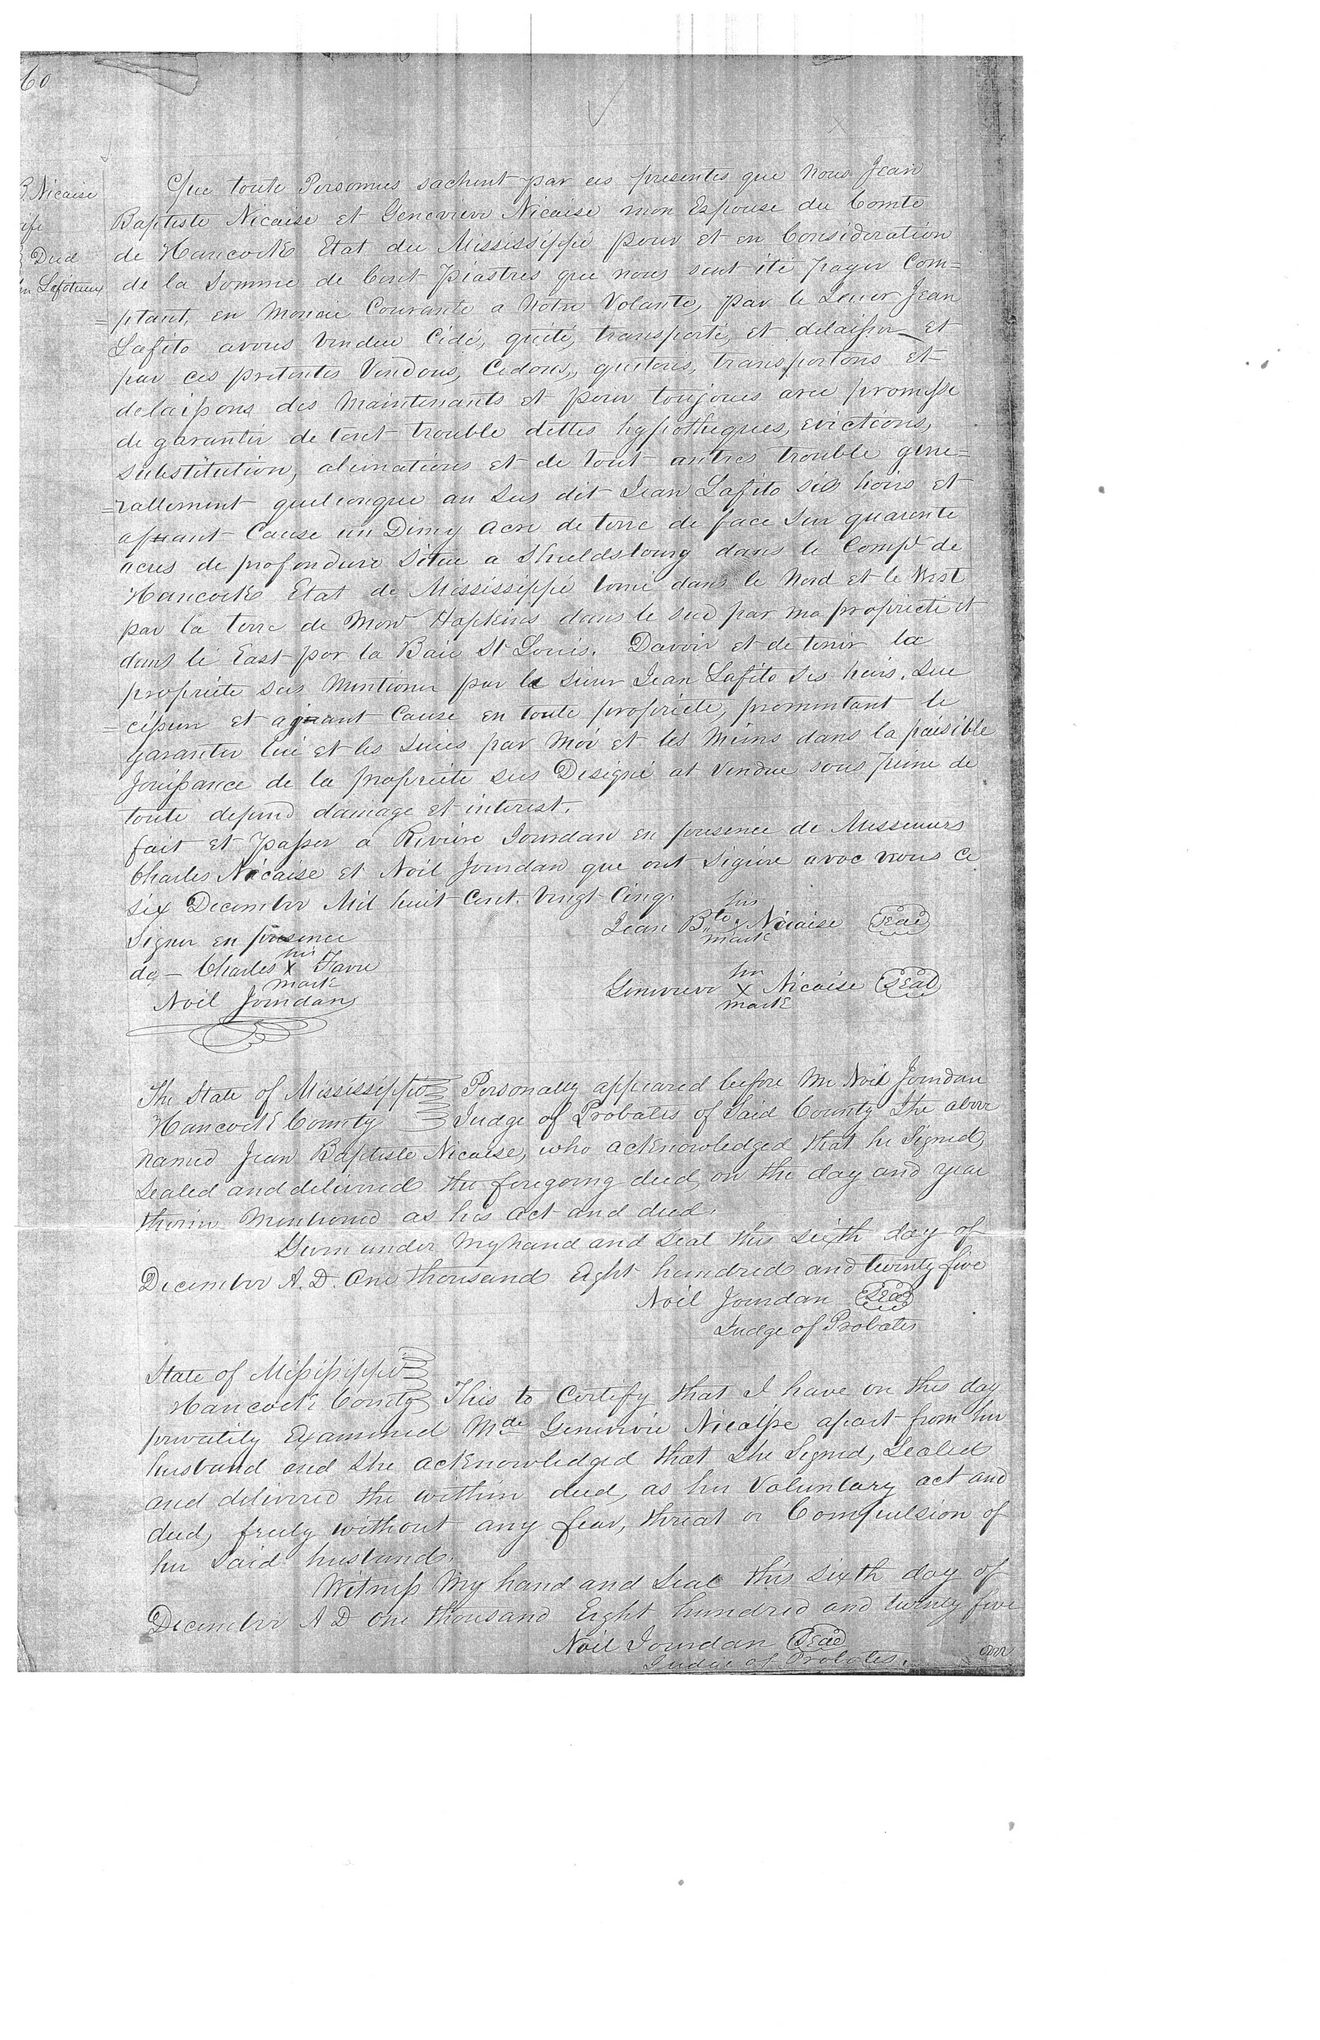 60
B. Nicaise
ife
Deed
Lafoteaux
Que toute Personnes sachent par ces presentes que nous Jean
Baptiste Nicaise et Genevieve Nicaise mon Espouse du Comté
de Hancock Etat du Mississippi pour et en Consideration
de la Somme de Cent Piastres que nous sont été payer Com=
=ptant, en Monaie Courante a Notre Volante, par le Sieur Jean
Lafito avons Vendue Cidé, quité, transporté, et delaisser et
par ces presentes Vendons, Cedons, quitons, transportons et
delaissons des Maintenants et pour toujours avec promesse
de garantir de tout trouble dettes hypotheques, evictions,
substitution, alienations et de tout autres trouble gene=
=rallement quelconque au Sus dit Jean Lafito ses hoirs et
ayant Cause un Demy acre de terre de face Sur quarente
acres de profondure Situe a Shieldsbourg dans le Compt de
Hancock Etat de Mississippi borné dans le Nord et le West
par la terre de Monr Hopkins dans le sud par ma propriete et
dans le East par la Baie St Louis. Davoir et de tenir la
propriete sus Mentioner par le Sieur Jean Lafito ses heirs, suc
=cesseur et ayant Cause en toute propriete, promintant le
garantir lui et les Siens par Moi et les Miens dans la paisible
Jouissance de la propriete sus Designé et Vendue sous peine de
toute depend damage et interest.
fait et passer a Riviere Jourdan en presence de Messieurs
Charles Nicaise et Noil Jourdan que ont Signer avec nous ce
six Decembre Mil huit Cent Vingt Cinq.
his
Jean Bte x Nicaise Seal
mark
Signer en presence
his
de — Charles X Favre
mark
Noil Jourdan
her
Genevieve X Nicaise Seal
mark
The State of Mississippi Personally appeared before Me Noil Jourdan
Hancock County Judge of Probates of Said County the above
named Jean Baptiste Nicaise, who acknowledged that he Signed,
Sealed and delivered the foregoing deed, on the day and year
therin Mentioned as his act and deed.
Given under My hand and Seal this sixth day of
December A.D. One thousand Eight hundred and twenty five
Noil Jourdan Seal
Judge of Probates
State of Mississippi
Hancock County This to Certify that I have on this day
privatily Examined Mde Genevive Nicaise apart from her
husband and she acknowledged that she Signed, Sealed
and delivered the within deed, as her Voluntary act and
deed, freely without any fear, threat or Compulsion of
her Said husband.
Witness My hand and Seal this sixth day of
December A D One thousand Eight hundred and twenty five
Noil Jourdan Seal
Judge of Probates.